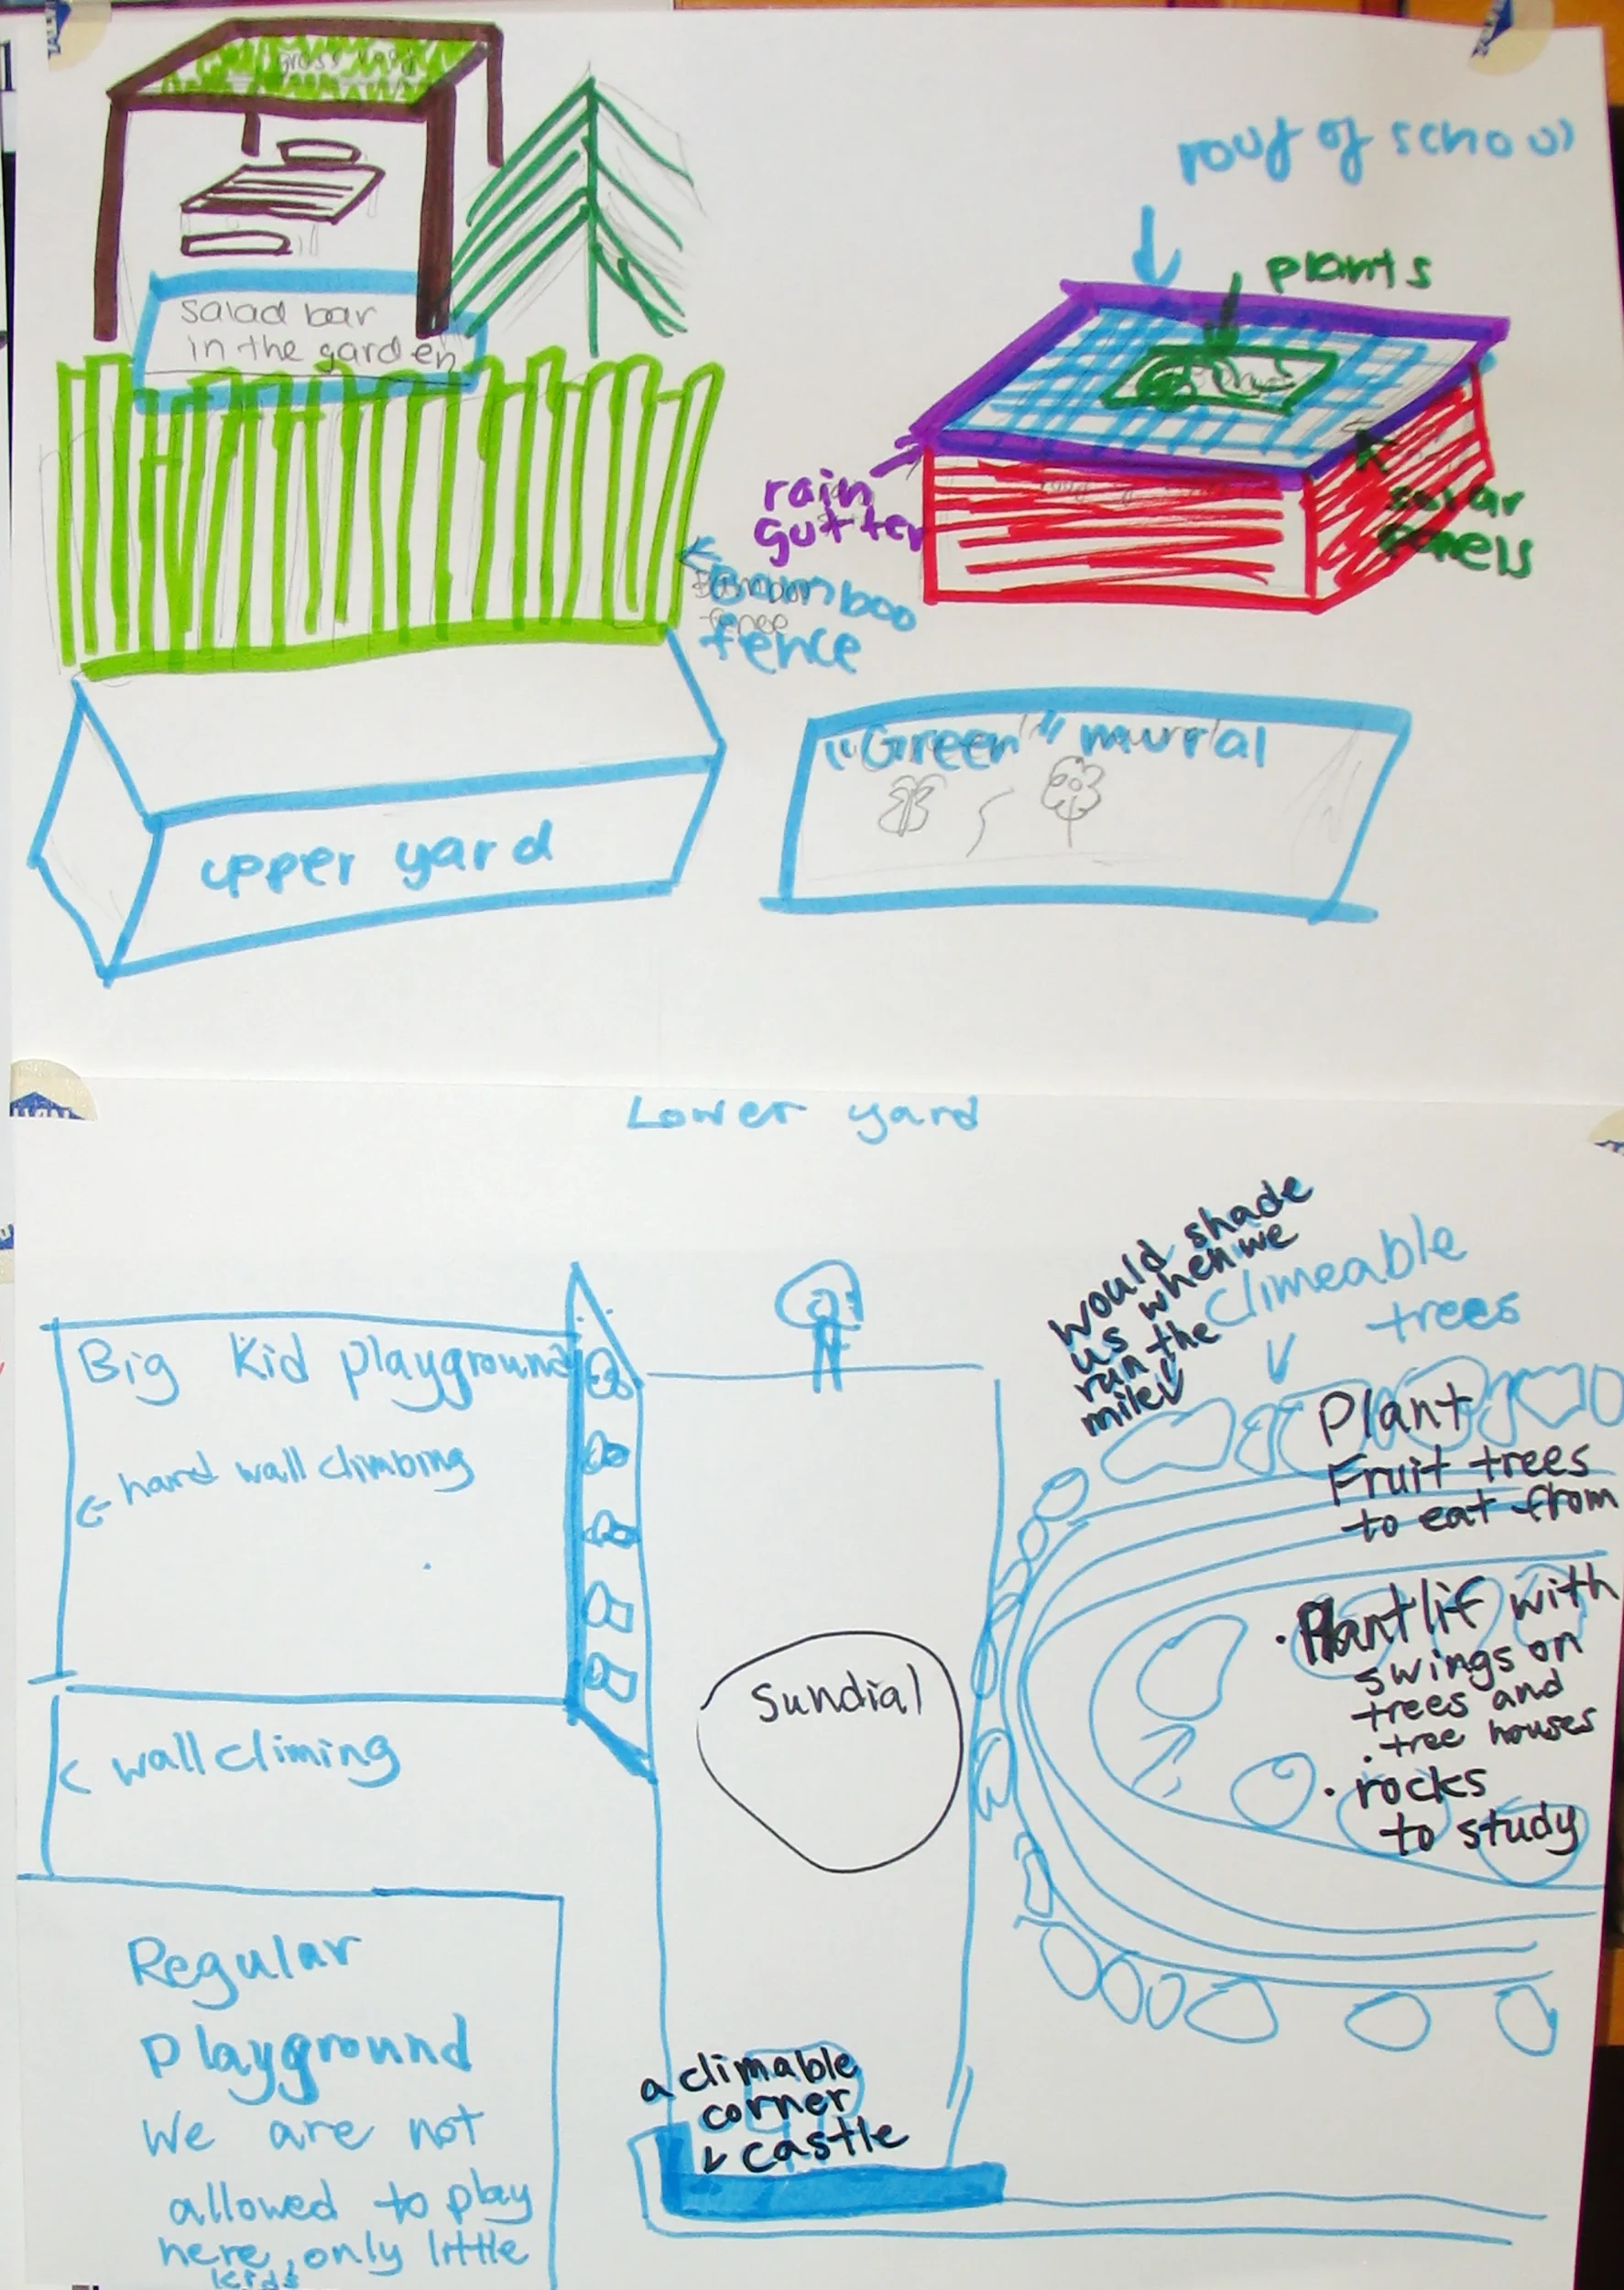 salad bar
in the garden
roof of school
plants
rain
gutter
solar
panels
Bamboo
fence
bamboo
fence
"Green" mural
upper yard
Lower yard
would shade
us when we
run the
mile
climeable
trees
Big Kid playground
hard wall climbing
Plant
Fruit trees
to eat from
• Plantlif with
swings on
trees and
• tree houses
• rocks
to study
Sundial
wall climing
Regular
Playground
We are not
allowed to play
here, only little
kids
a climable
corner
castle